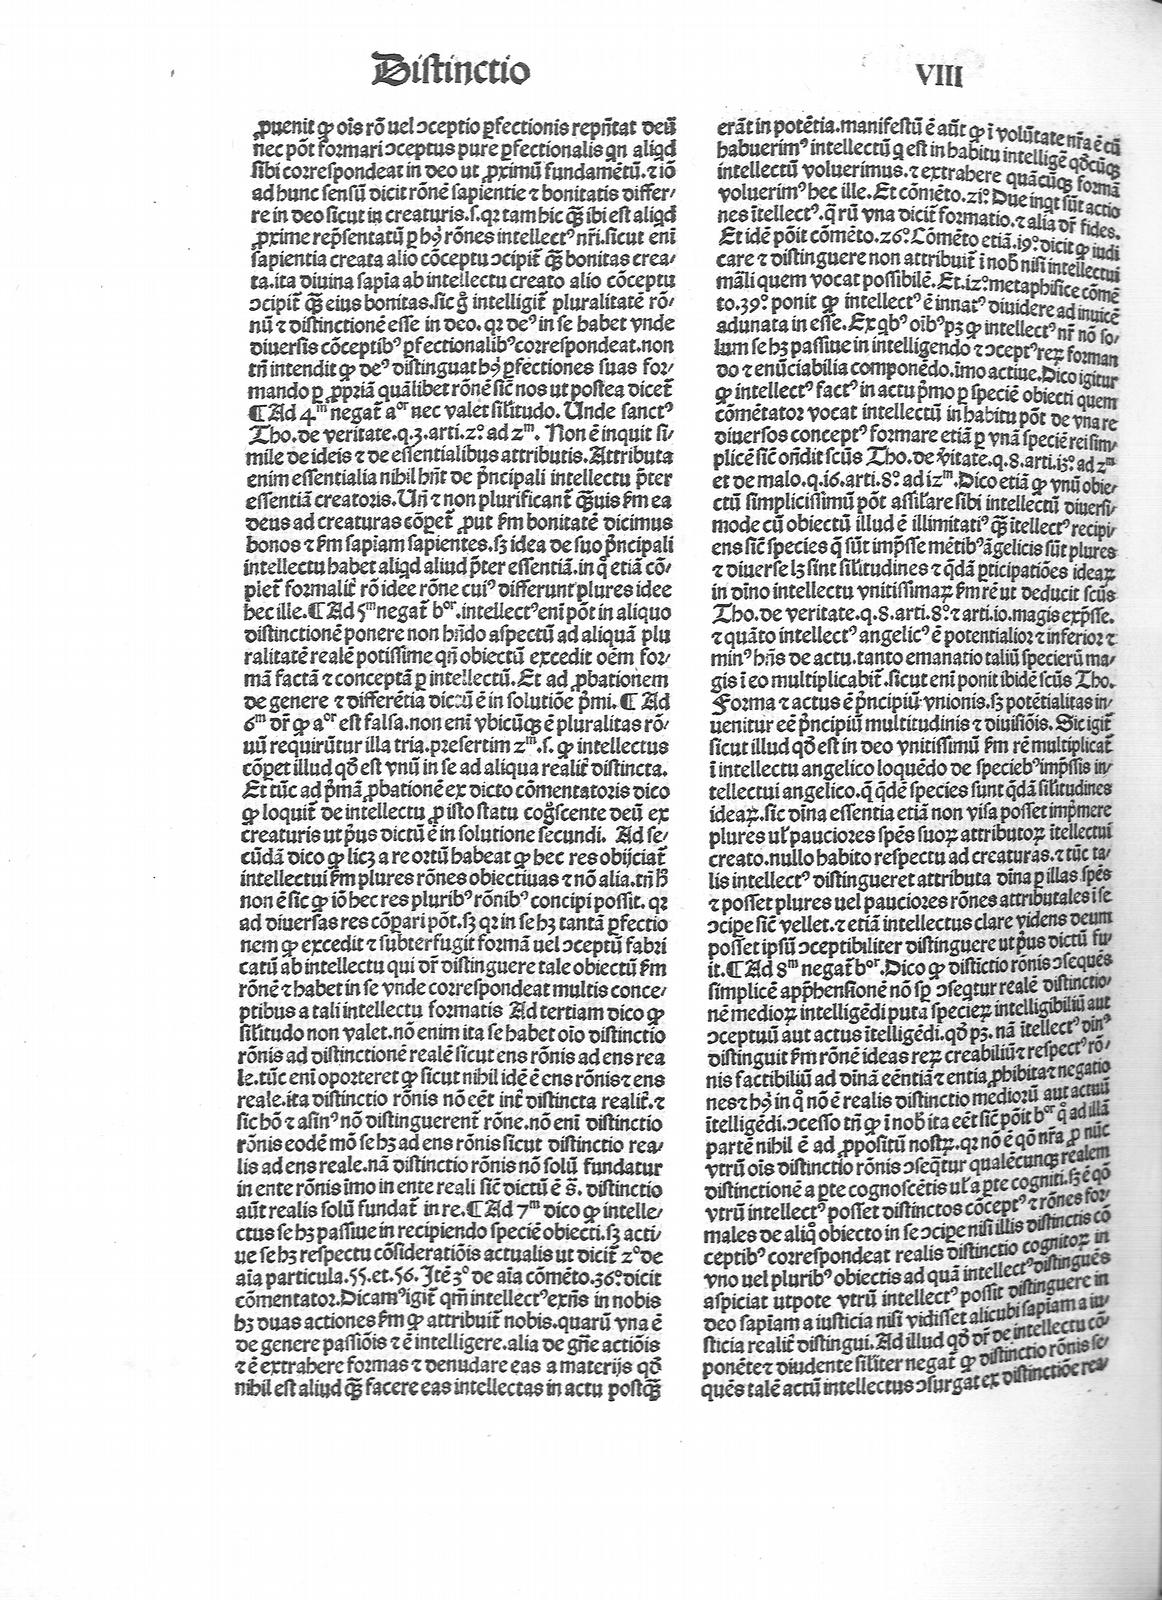 Distinctio VIII
ꝓuenit ꝙ oīs rō uel ɔceptio ꝑfectionis repn̄tat deū
nec pōt formari ɔceptus pure ꝑfectionalis qn aliqd
sibi correspondeat in deo ut ꝓximū fundamētū. ⁊ iō
ad hunc sensū dicit rōnē sapientie ⁊ bonitatis differ/
re in deo sicut in creaturis. s. qꝛ tam hic ꝙ̄ ibi est aliqd
ꝓxime repn̄sentatū ꝑ hꝰ rōnes intellectꝰ nr̄i. sicut eni
sapientia creata alio cōceptu ɔcipit̄ ꝙ̄ bonitas crea/
ta. ita diuina sapīa ab intellectu creato alio cōceptu
ɔcipit̄ ꝙ̄ eius bonitas. sic g̊ intelligit̄ pluralitatē rō/
nū ⁊ distinctionē esse in deo. qꝛ deꝰ in se habet vnde
diuersis cōceptibꝰ ꝑfectionalibꝰ correspondeat. non
tn̄ intendit ꝙ deꝰ distinguat hꝰ ꝑfectiones suas for/
mando ꝑ ꝓpriā quālibet rōnē sic̄ nos ut postea dicet̄
¶ Ad 4ᵐ negat̄ aᵒʳ nec valet sil̄itudo. Unde sanctꝰ
Tho. de veritate. q. 3. arti. 2º ad 2ᵐ. Non ē inquit si/
mile de ideis ⁊ de essentialibus attributis. Attributa
enim essentialia nihil hn̄t de p̄ncipali intellectu p̄ter
essentiā creatoris. Un̄ ⁊ non plurificant̄ ꝙ̄uis fm ea
deus ad creaturas cōꝑet̄ ꝓut fm bonitatē dicimus
bonos ⁊ fm sapiam sapientes. sꝫ idea de suo p̄ncipali
intellectu habet aliqd aliud p̄ter essentiā. in q̊ etiā cō/
plet̄ formalit̄ rō idee rōne cuiꝰ differunt plures idee
hec ille. ¶ Ad 5ᵐ negat̄ bᵒʳ. intellectꝰ eni pōt in aliquo
distinctionē ponere non hn̄do aspectū ad aliquā plu
ralitatē realē potissime qn̄ obiectū excedit oēm for/
mā factā ⁊ conceptā ꝑ intellectū. Et ad ꝓbationem
de genere ⁊ differētia dictū ē in solutiōe p̄mi. ¶ Ad
6ᵐ dr̄ ꝙ aᵒʳ est falsa. non eni vbicūqꝫ ē pluralitas rō/
nū requirūtur illa tria. presertim 2ᵐ. s. ꝙ intellectus
cōꝑet illud qđ est vnū in se ad aliqua realit̄ distincta.
Et tūc ad p̄mā ꝓbationē ex dicto cōmentatoris dico
ꝙ loquit̄ de intellectu ꝓ isto statu cog̊scente deū ex
creaturis ut p̄us dictū ē in solutione secundi. Ad se/
cūdā dico ꝙ licꝫ a re ortū habeat ꝙ hec res obijciat̄
intellectui fm plures rōnes obiectiuas ⁊ nō alia. tn̄ h̄
non ē sic ꝙ iō hec res pluribꝰ rōnibꝰ concipi possit. qꝛ
ad diuersas res cōꝑari pōt. sꝫ qꝛ in se hꝫ tantā ꝑfectio
nem ꝙ excedit ⁊ subterfugit formā uel ɔceptū fabri
catū ab intellectu qui dr̄ distinguere tale obiectū fm
rōnē ⁊ habet in se vnde correspondeat multis conce/
ptibus a tali intellectu formatis Ad tertiam dico ꝙ
sil̄itudo non valet. nō enim ita se habet oīo distinctio
rōnis ad distinctionē realē sicut ens rōnis ad ens rea
le. tūc eni oporteret ꝙ sicut nihil idē ē ens rōnis ⁊ ens
reale. ita distinctio rōnis nō eēt int̄ distincta realit̄. ⁊
sic hō ⁊ asinꝰ nō distinguerent̄ rōne. nō eni distinctio
rōnis eodē mō se hꝫ ad ens rōnis sicut distinctio rea/
lis ad ens reale. nā distinctio rōnis nō solū fundatur
in ente rōnis imo in ente reali sic̄ dictū ē s̄. distinctio
aūt realis solū fundat̄ in re. ¶ Ad 7ᵐ dico ꝙ intelle/
ctus se hꝫ passiue in recipiendo speciē obiecti. sꝫ acti/
ue se hꝫ respectu cōsideratiōis actualis ut dicit̄ 2º de
aīa particula. 55. et. 56. Itē 3º de aīa cōmēto. 36º. dicit
cōmentator. Dicamꝰ igit̄ qm̄ intellectꝰ exn̄s in nobis
hꝫ duas actiones fm ꝙ attribuit̄ nobis. quarū vna ē
de genere passiōis ⁊ ē intelligere. alia de gn̄e actiōis
⁊ ē extrahere formas ⁊ denudare eas a materijs qđ
nihil est aliud ꝙ̄ facere eas intellectas in actu postꝙ̄
erāt in potētia. manifestū ē aūt ꝙ ī volūtate nr̄a ē cū
habuerimꝰ intellectū q est in habitu intelligē qđcūqꝫ
intellectū voluerimus. ⁊ extrahere quācūqꝫ formā
voluerimꝰ hec ille. Et cōmēto. 21º. Due inqt sūt actio
nes ītellectꝰ. q̄ rū vna dicit̄ formatio. ⁊ alia dr̄ fides.
Et idē pōit cōmēto. 26º. Cōmēto etiā. 19º. dicit ꝙ iudi
care ⁊ distinguere non attribuit̄ ī nob̄ nisi intellectui
māli quem vocat possibilē. Et. 12º. metaphisice cōmē
to. 39º. ponit ꝙ intellectꝰ ē innatꝰ diuidere ad inuicē
adunata in esse. Ex qbꝰ oibꝰ pꝫ ꝙ intellectꝰ nr̄ nō so/
lum se hꝫ passiue in intelligendo ⁊ ɔceptꝰ reꝝ forman
do ⁊ enūciabilia componēdo. imo actiue. Dico igitur
ꝙ intellectꝰ factꝰ in actu p̄mo ꝑ speciē obiecti quem
cōmētator vocat intellectū in habitu pōt de vna re
diuersos conceptꝰ formare etiā ꝑ vnā speciē rei sim/
plicē sic̄ on̄dit scūs Tho. de v̄itate. q. 8. arti. 13º. ad 2ᵐ
et de malo. q. 16. arti. 8º. ad 12ᵐ. Dico etiā ꝙ vnū obie/
ctū simplicissimū pōt assil̄are sibi intellectū diuersi/
mode cū obiectū illud ē illimitatiꝰ ꝙ̄ ītellectꝰ recipi/
ens sic̄ species q̄ sūt imp̄sse mētibꝰ āgelicis sūt plures
⁊ diuerse lꝫ sint sil̄itudines ⁊ q̄dā ꝑticipatiōes ideaꝝ
in dīno intellectu vnitissimaꝝ fm rē ut deducit scūs
Tho. de veritate. q. 8. arti. 8º. ⁊ arti. 10. magis exp̄sse.
⁊ quāto intellectꝰ angelicꝰ ē potentialior ⁊ inferior ⁊
minꝰ hn̄s de actu. tanto emanatio taliū specierū ma/
gis ī eo multiplicabit̄. sicut eni ponit ibidē scūs Tho.
Forma ⁊ actus ē p̄ncipiū vnionis. sꝫ potētialitas in/
uenitur eē p̄ncipiū multitudinis ⁊ diuisiōis. Sic igit̄
sicut illud qđ est in deo vnitissimū fm rē multiplicat̄
ī intellectu angelico loquēdo de speciebꝰ imp̄ssis in/
tellectui angelico. q̄ qdē species sunt q̄dā sil̄itudines
ideaꝝ. sic dīna essentia etiā non visa posset imp̄mere
plures ul̄ pauciores spēs suoꝝ attributoꝝ ītellectui
creato. nullo habito respectu ad creaturas. ⁊ tūc ta/
lis intellectꝰ distingueret attributa dīna ꝑ illas spēs
⁊ posset plures uel pauciores rōnes attributales ī se
ɔcipe sic̄ vellet. ⁊ etiā intellectus clare videns deum
posset ipsū ɔceptibiliter distinguere ut p̄us dictū fu/
it. ¶ Ad 8ᵐ negat̄ bᵒʳ. Dico ꝙ distictio rōnis ɔsequēs
simplicē app̄hensionē nō sꝑ ɔseqtur realē distinctio/
nē medioꝝ intelligēdi puta specieꝝ intelligibiliū aut
ɔceptuū aut actus ītelligēdi. qđ pꝫ. nā ītellectꝰ dinꝰ
distinguit fm rōnē ideas reꝝ creabiliū ⁊ respectꝰ rō/
nis factibiliū ad dīnā eēntiā ⁊ entia ꝓhibita ⁊ negatio
nes ⁊ hꝰ in q̊ nō ē realis distinctio medioꝝ aut actuū
ītelligēdi. ɔcesso tn̄ ꝙ ī nob̄ ita eēt sic̄ pōit bᵒʳ q̊ ad illā
partē nihil ē ad ꝓpositū nostꝝ. qꝛ nō ē qō nr̄a ꝓ nūc
vtrū oīs distinctio rōnis ɔseq̄tur qualēcunqꝫ realem
distinctionē a ꝑte cognoscētis ul̄ a ꝑte cogniti. sꝫ ē qō
vtrū intellectꝰ posset distinctos cōceptꝰ ⁊ rōnes for/
males de aliq̊ obiecto in se ɔcipe nisi illis distinctis cō
ceptibꝰ correspondeat realis distinctio cognitoꝝ in
vno uel pluribꝰ obiectis ad quā intellectꝰ distinguēs
aspiciat utpote vtrū intellectꝰ possit distinguere in
deo sapiam a iusticia nisi vidisset alicubi sapiam a iu/
sticia realit̄ distingui. Ad illud qđ dr̄ de intellectu cō/
ponēte ⁊ diudente sil̄iter negat̄ ꝙ distinctio rōnis se/
quēs talē actū intellectus ɔsurgat ex distinctiōe rea/